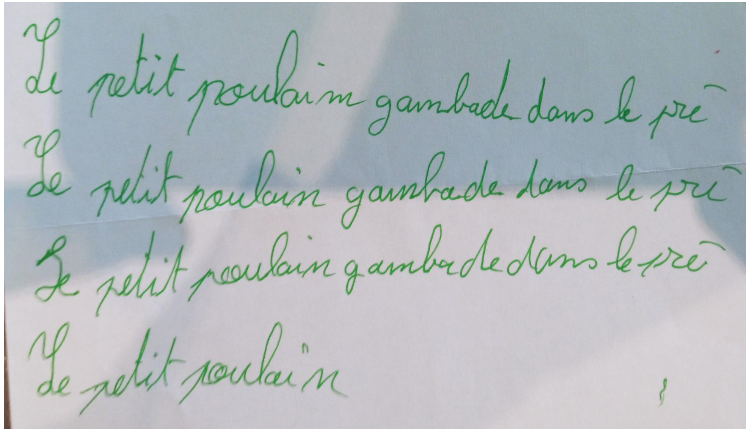 Le petit poulain gambade dans le pré
Le petit poulain gambade dans le pré
Le petit poulain gambade dans le pré
Le petit poulain